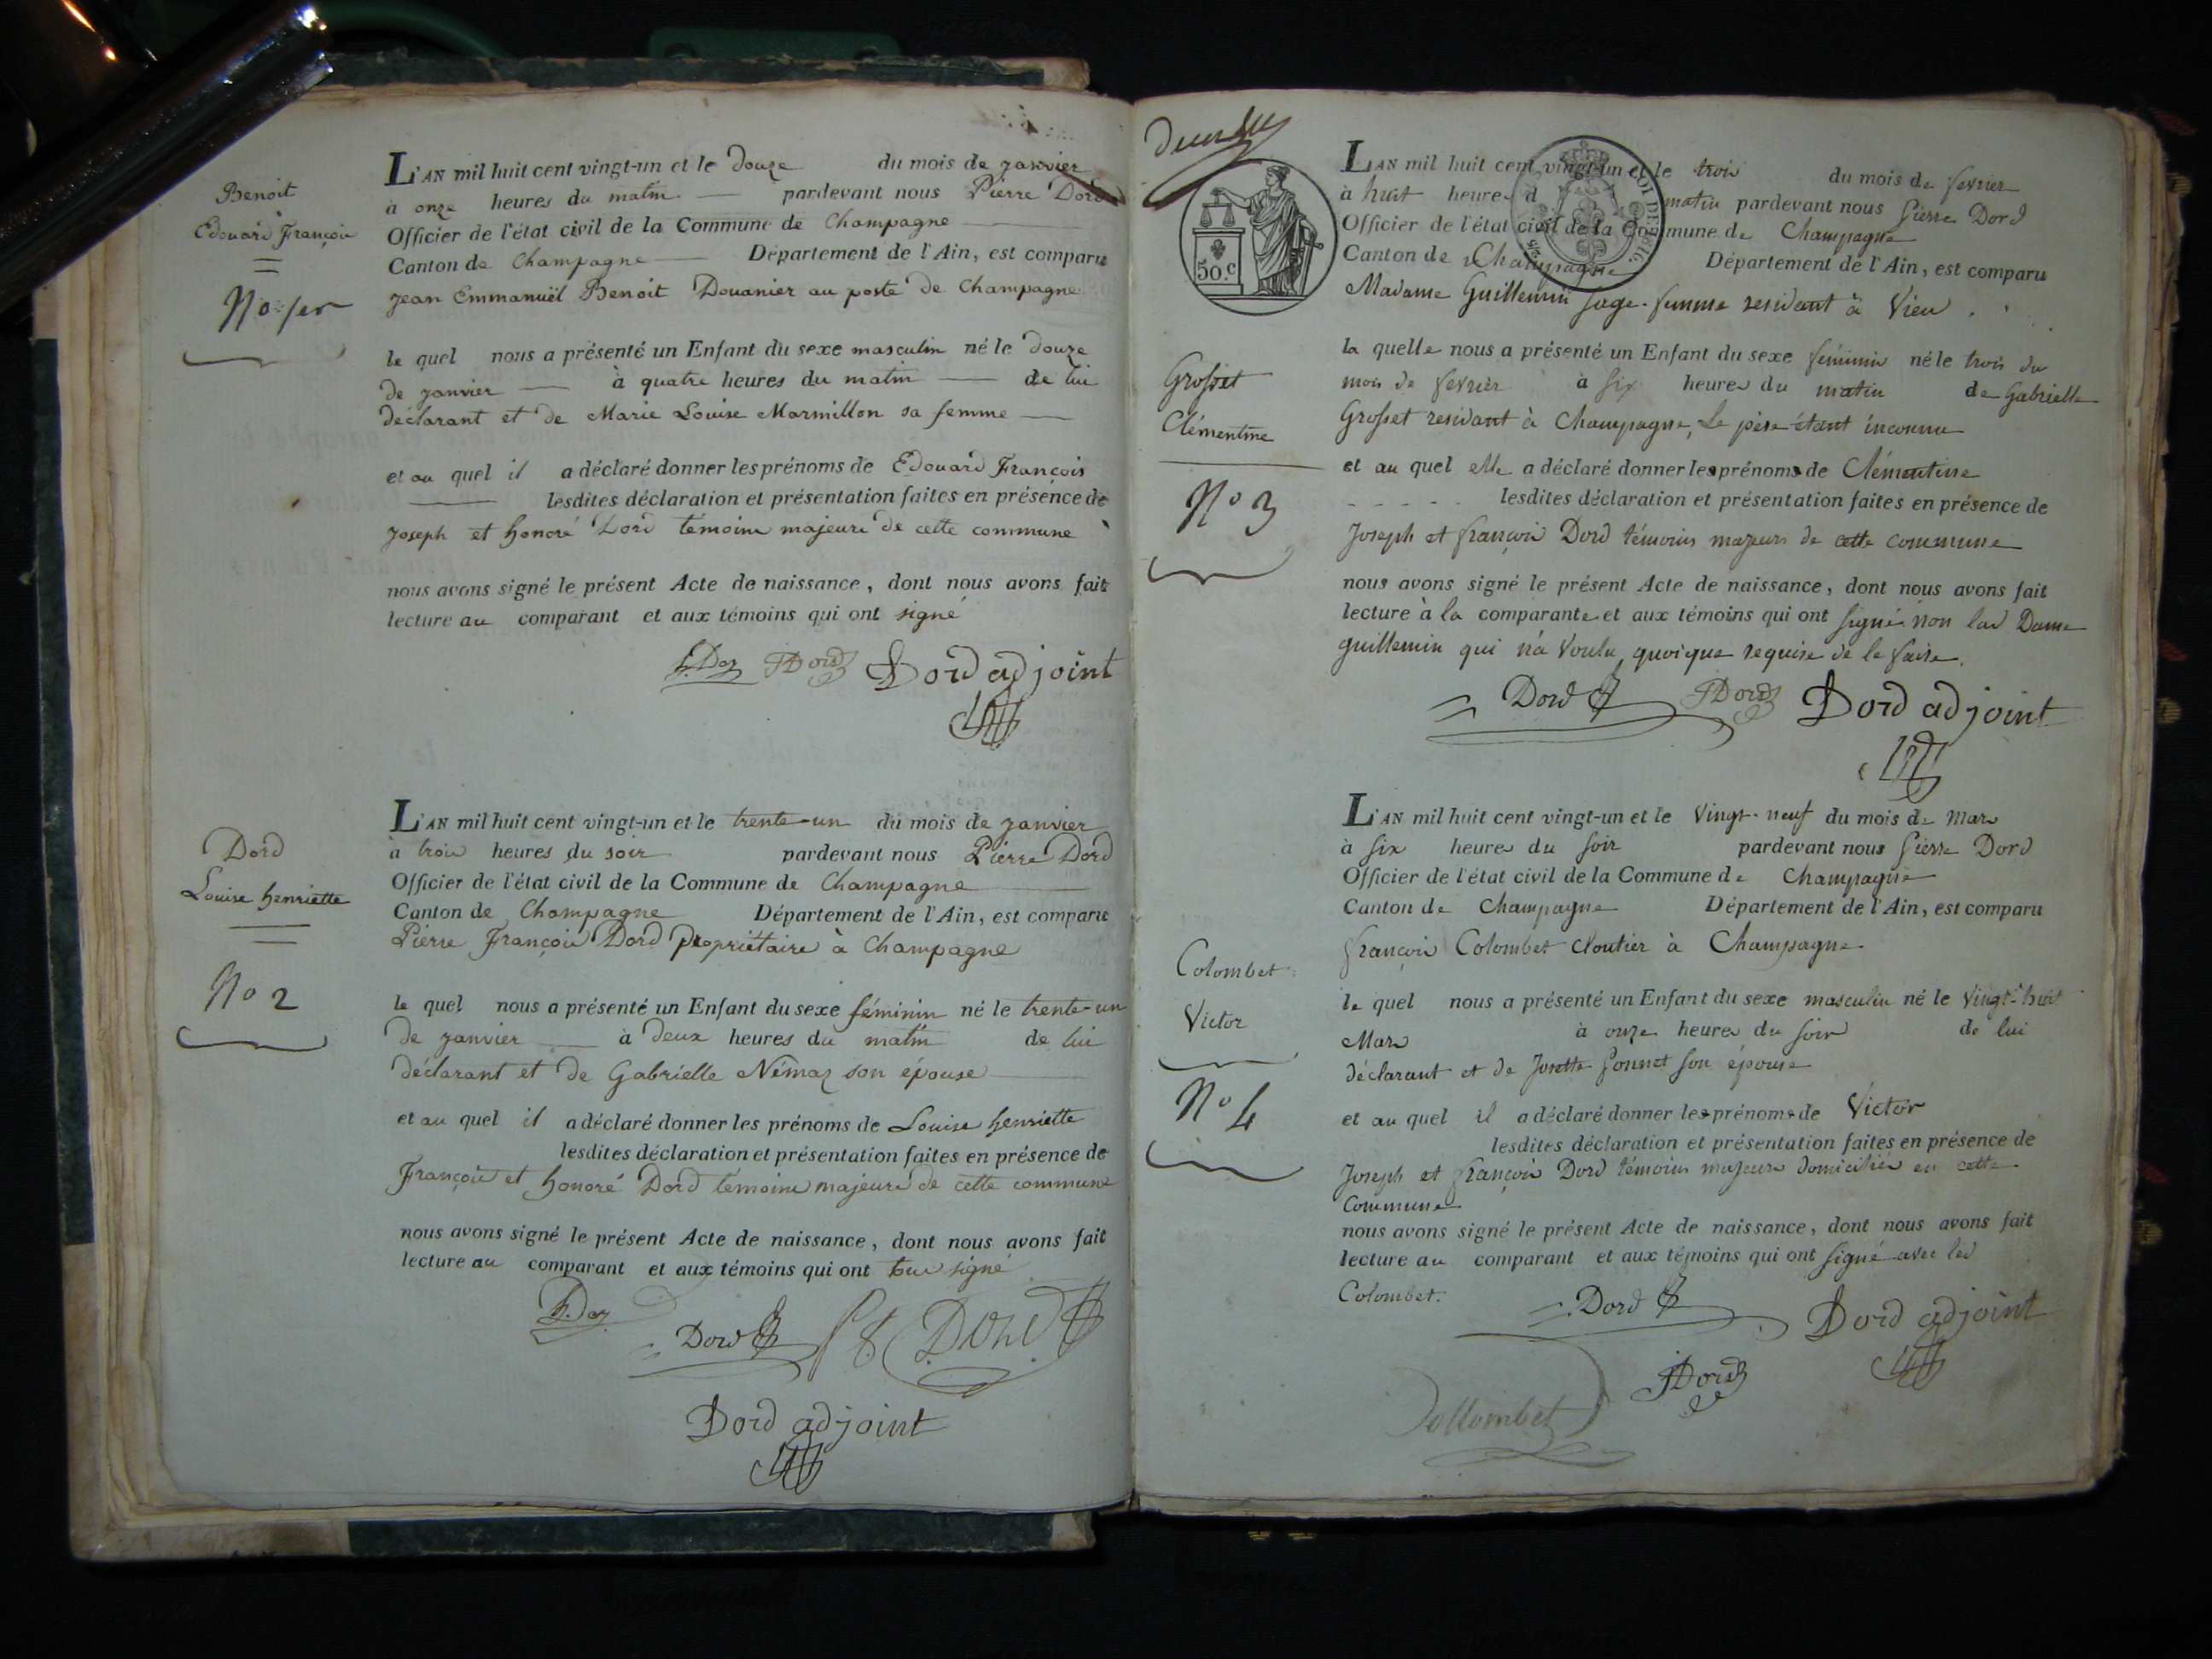 Benoit
Edouard François
No 1er
L'AN mil huit cent vingt-un et le douze du mois de janvier
à onze heures du matin pardevant nous Pierre Dord
Officier de l'état civil de la Commune de Champagne
Canton de Champagne Département de l'Ain, est comparu
Jean Emmanuël Benoit Douanier au poste de Champagne
le quel nous a présenté un Enfant du sexe masculin né le douze
de janvier à quatre heures du matin de lui
déclarant et de Marie Louise Marmillon sa femme
et au quel il a déclaré donner les prénoms de Edouard François
lesdites déclaration et présentation faites en présence de
Joseph et honoré Dord témoins majeurs de cette commune
nous avons signé le présent Acte de naissance, dont nous avons fait
lecture au comparant et aux témoins qui ont signé
JDord Dord adjoint
Dord
Louise henriette
No 2
L'AN mil huit cent vingt-un et le trente-un du mois de janvier
à trois heures du soir pardevant nous Pierre Dord
Officier de l'état civil de la Commune de Champagne
Canton de Champagne Département de l'Ain, est comparu
Pierre François Dord propriétaire à Champagne
le quel nous a présenté un Enfant du sexe féminin né le trente-un
de janvier à deux heures du matin de lui
déclarant et de Gabrielle Némoz son épouse
et au quel il a déclaré donner les prénoms de Louise henriette
lesdites déclaration et présentation faites en présence de
François et honoré Dord temoins majeurs de cette commune
nous avons signé le présent Acte de naissance, dont nous avons fait
lecture au comparant et aux témoins qui ont tous signé
Dord Dord
Dord adjoint
50.c
Grosset
Clémentine
No 3
L'AN mil huit cent vingt-un et le trois du mois de fevrier
à huit heures d matin pardevant nous Pierre Dord
Officier de l'état civil de la Commune de Champagne
Canton de Champagne Département de l'Ain, est comparu
Madame Guillemin sage-femme residant à Vieu.
la quelle nous a présenté un Enfant du sexe féminin né le trois du
mois de fevrier à six heures du matin de Gabrielle
Grosset residant à Champagne, Le père étant inconnu
et au quel elle a déclaré donner les prénoms de Clémentine
lesdites déclaration et présentation faites en présence de
Joseph et françois Dord témoins majeurs de cette commune
nous avons signé le présent Acte de naissance, dont nous avons fait
lecture à la comparante et aux témoins qui ont signé non lad Dame
guillemin qui n'a voulu, quoique requise de le faire.
Dord JDord Dord adjoint
Colombet
Victor
No 4
L'AN mil huit cent vingt-un et le vingt-neuf du mois de Mars
à six heures du soir pardevant nous Pierre Dord
Officier de l'état civil de la Commune de Champagne
Canton de Champagne Département de l'Ain, est comparu
françois Colombet cloutier à Champagne.
le quel nous a présenté un Enfant du sexe masculin né le vingt-huit
Mars à onze heures du soir de lui
déclarant et de Josette Ponnet son épouse
et au quel il a déclaré donner les prénoms de Victor
lesdites déclaration et présentation faites en présence de
Joseph et françois Dord témoins majeurs domiciliés en cette
Commune
nous avons signé le présent Acte de naissance, dont nous avons fait
lecture au comparant et aux témoins qui ont signé avec led
Colombet.
Dord Dord adjoint
JDord
Collombet